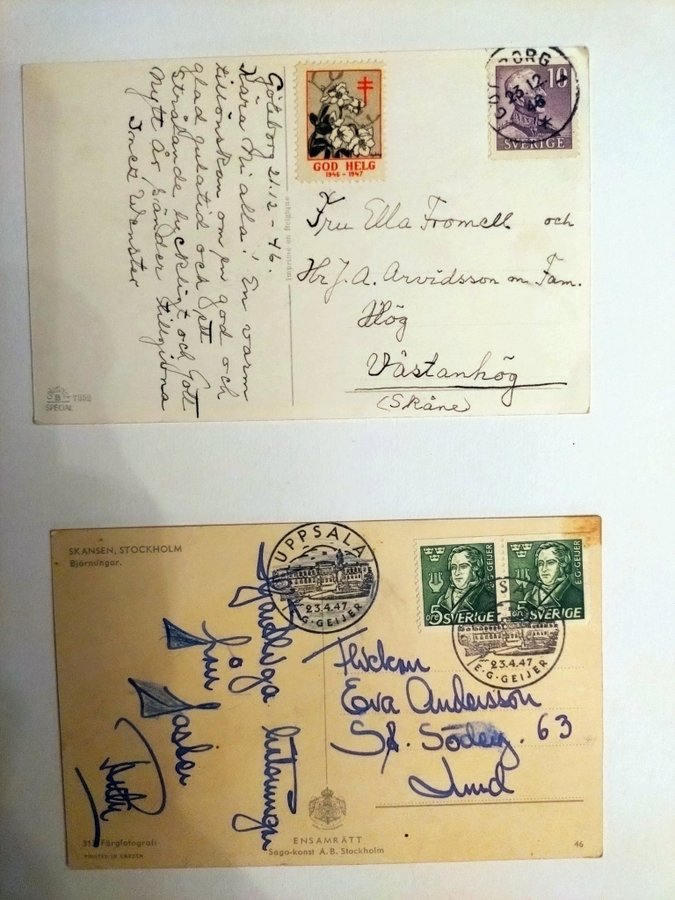 Göteborg 21.12 - 46.
Kära Ni alla! En varm
tillönskan om en god och
glad juletid och ett
strålande lyckligt och Gott
Nytt År, sänder tillgivna
Inez Wenster
GOD HELG
1946 - 1947
10
SVERIGE
23 12
46
Imprimé en Belgique
Fru Ella Fromell och
Hr J. A. Arvidsson m. Fam.
Hög
Västanhög
(Skåne)
7352
SPECIAL
SKANSEN, STOCKHOLM
Björnungar.
UPPSALA
23.4.47
E·G·GEIJER
E·G·GEIJER
5 ÖRE SVERIGE
E·G·GEIJER
5 ÖRE SVERIGE
23.4.47
E·G·GEIJER
Hjärtliga hälsningar
från
Flickan
Eva Andersson
St. Söderg. 63
Lund
Färgfotografi
PRINTED IN SWEDEN
ENSAMRÄTT
Sago-konst A.B. Stockholm
46